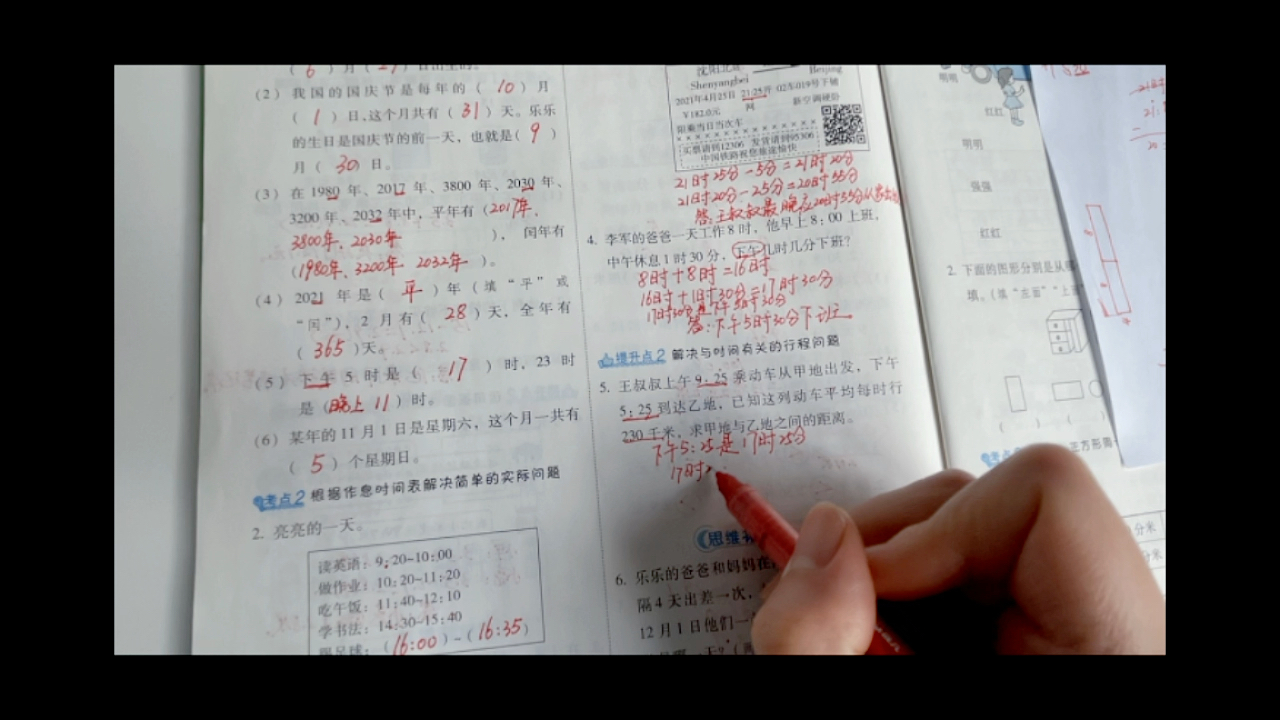 (6)月(29)日出生的。
(2) 我国的国庆节是每年的(10)月
(1)日,这个月共有(31)天。乐乐
的生日是国庆节的前一天,也就是(9)
月(30)日。
(3) 在1980年、2017年、3800年、2030年、
3200年、2032年中,平年有(2017年、
3800年、2030年),闰年有
(1980年、3200年 2032年)。
(4) 2021年是(平)年(填“平”或
“闰”),2月有(28)天,全年有
(365)天。
(5) 下午5时是(17)时,23时
是(晚上11)时。
(6) 某年的11月1日是星期六,这个月一共有
(5)个星期日。
考点2 根据作息时间表解决简单的实际问题
2. 亮亮的一天。
读英语:9:20~10:00
做作业:10:20~11:20
吃午饭:11:40~12:10
学书法:14:30~15:40
踢足球:(16:00)~(16:35)
沈阳北
Shenyangbei
Beijing
2021年4月25日 21:25开 02车019号下铺
¥182.0元
新空调硬卧
限乘当日当次车
买票请到12306 发货请到95306
中国铁路祝您旅途愉快
21时25分-5分=21时20分
21时20分-25分=20时55分
答:王叔叔最晚应20时55分从家出
4. 李军的爸爸一天工作8时,他早上8:00上班,
中午休息1时30分,下午几时几分下班?
8时+8时=16时
16时+1时30分=17时30分
17时30分是下午5时30分
答:下午5时30分下班。
提升点2 解决与时间有关的行程问题
5. 王叔叔上午9:25乘动车从甲地出发,下午
5:25到达乙地,已知这列动车平均每时行
230千米,求甲地与乙地之间的距离。
下午5:25是17时25分
17时
思维
6. 乐乐的爸爸和妈妈在
隔4天出差一次,
12月1日他们一
明明
红红
明明
强强
红红
2. 下面的图形分别是从哪
填。(填“左面”“上面
( ) (
考点
三方形
分米
分米